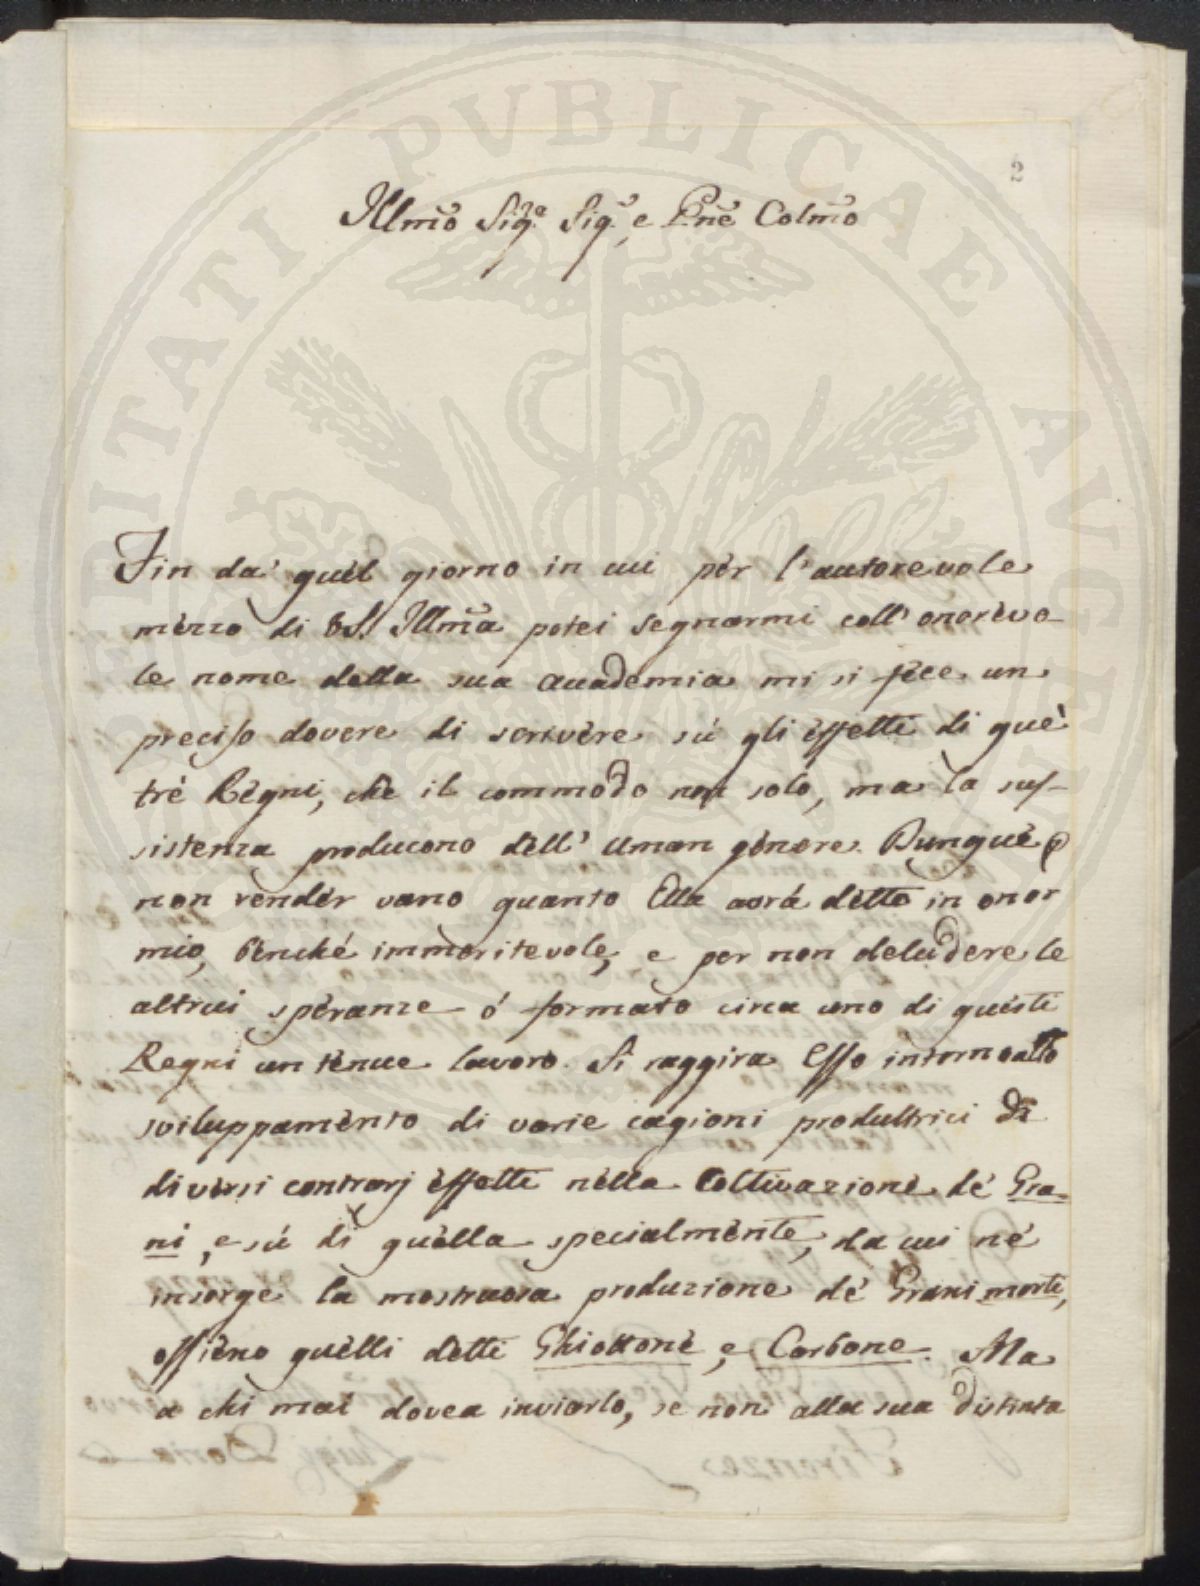 PROSPERITATI PUBLICAE AUGENDAE
2
Illmo Sigre Sigr, e Pne Colmo
Fin da' quèl giorno in cui pèr l'autorevole
mèzzo di VS. Illma potei segnarmi coll'onorèvo-
le nome della sua accademia mi si fece un
preciso dovere di scrivère sù gli èffetti di què
trè Règni, che il commodo non solo, ma la sus-
sistenza producono dell'uman gènere. Dunquè p
non rendèr vano quanto Ella avrà dètto in onor
mio, bènché immèritevole, e per non deludere le
altrui spèranze ó formato circa uno di quèsti
Regni un tènue lavoro. Si raggira Esso intorno allo
sviluppamènto di varie cagioni produttrici di
divèrsi contrarj èffetti nèlla Coltivazione dè Gra-
ni, e sù di quèlla specialmènte, da cui nè
insorge la mostruosa produzione dè Grani morti,
ossièno quèlli dètti Ghiottonè, e Carbone. Ma
a chi mai dovea inviarlo, se non alla sua distinta